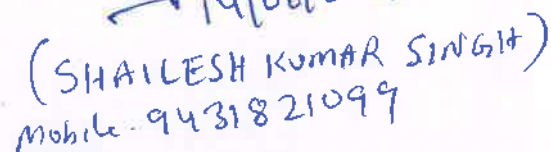 (SHAILESH KUMAR SINGH)
Mobile - 9431821099